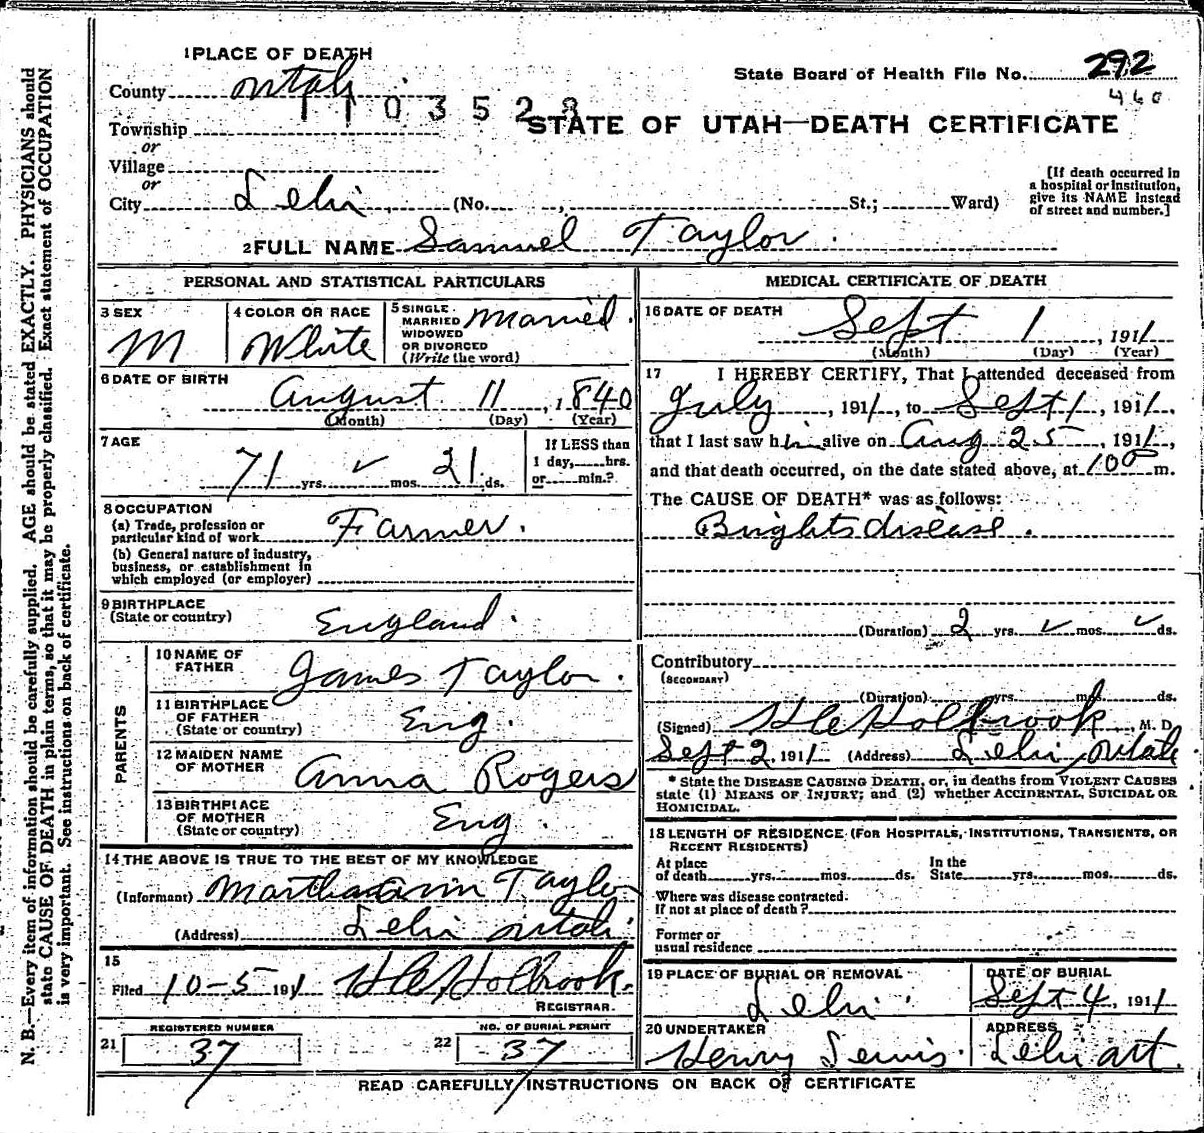 1 PLACE OF DEATH
County Utah
State Board of Health File No. 292
460
1103528
Township
or
Village
or
City Lehi, (No. , St.; Ward)
STATE OF UTAH—DEATH CERTIFICATE
[If death occurred in
a hospital or institution,
give its NAME instead
of street and number.]
2 FULL NAME Samuel Taylor.
PERSONAL AND STATISTICAL PARTICULARS
3 SEX
M
4 COLOR OR RACE
White
5 SINGLE
MARRIED
WIDOWED
OR DIVORCED
(Write the word)
Married.
6 DATE OF BIRTH
August 11, 1840
(Month) (Day) (Year)
7 AGE
71 yrs. ✓ mos. 21 ds.
If LESS than
1 day, hrs.
or min.?
8 OCCUPATION
(a) Trade, profession or
particular kind of work Farmer.
(b) General nature of industry,
business, or establishment in
which employed (or employer)
9 BIRTHPLACE
(State or country) England.
PARENTS
10 NAME OF
FATHER James Taylor.
11 BIRTHPLACE
OF FATHER
(State or country) Eng.
12 MAIDEN NAME
OF MOTHER Anna Rogers
13 BIRTHPLACE
OF MOTHER
(State or country) Eng.
14 THE ABOVE IS TRUE TO THE BEST OF MY KNOWLEDGE
(Informant) Taylor
(Address) Lehi Utah
15
Filed 10-5 1911 H E Holbrook.
REGISTRAR.
21 REGISTERED NUMBER
37
22 NO. OF BURIAL PERMIT
37
MEDICAL CERTIFICATE OF DEATH
16 DATE OF DEATH
Sept 1, 1911
(Month) (Day) (Year)
17 I HEREBY CERTIFY, That I attended deceased from
July, 1911, to Sept 1, 1911,
that I last saw him alive on Aug 25, 1911,
and that death occurred, on the date stated above, at 100 m.
The CAUSE OF DEATH* was as follows:
Brights disease.
(Duration) 2 yrs. ✓ mos. ✓ ds.
Contributory
(SECONDARY)
(Duration) yrs. mos. ds.
(Signed) H E Holbrook, M. D.
Sept 2, 1911 (Address) Lehi, Utah
* State the DISEASE CAUSING DEATH, or, in deaths from VIOLENT CAUSES
state (1) MEANS OF INJURY; and (2) whether ACCIDENTAL, SUICIDAL OR
HOMICIDAL.
18 LENGTH OF RESIDENCE (FOR HOSPITALS, INSTITUTIONS, TRANSIENTS, OR
RECENT RESIDENTS)
At place
of death yrs. mos. ds.
In the
State yrs. mos. ds.
Where was disease contracted.
If not at place of death?
Former or
usual residence
19 PLACE OF BURIAL OR REMOVAL
Lehi.
DATE OF BURIAL
Sept 4, 1911
20 UNDERTAKER
Henry Lewis.
ADDRESS
Lehi
READ CAREFULLY INSTRUCTIONS ON BACK OF CERTIFICATE
N. B.—Every item of information should be carefully supplied. AGE should be stated EXACTLY. PHYSICIANS should
state CAUSE OF DEATH in plain terms, so that it may be properly classified. Exact statement of OCCUPATION
is very important. See instructions on back of certificate.